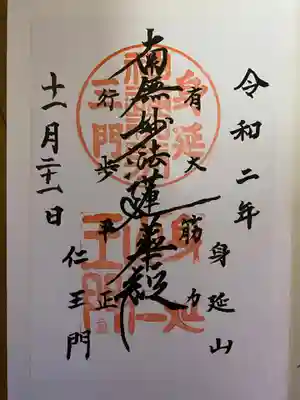 令和二年
身延山
有大筋力
南無妙法蓮華経
行歩平正
仁王門
十一月二十一日
身延
王門
身延山仁王門